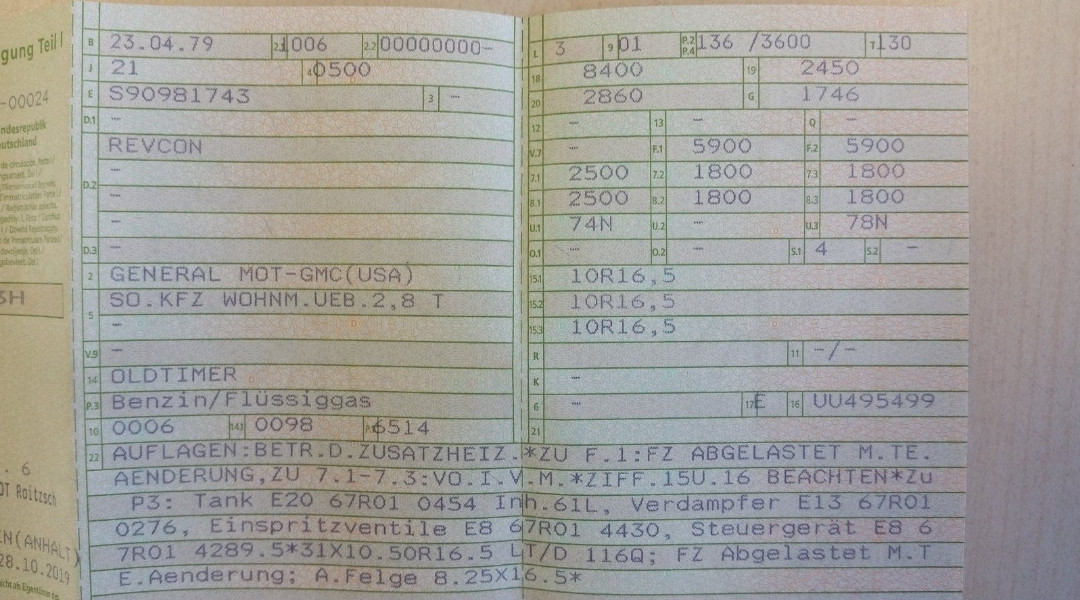 gung Teil I
-00024
ndesrepublik
eutschland
SH
. 6
OT Roitzsch
EN(ANHALT)
28.10.2019
B 23.04.79 2.1 1006 2.2 00000000-
J 21 4 0500
E S90981743 3 -
D.1 -
REVCON
D.2 -
-
-
D.3 -
2 GENERAL MOT-GMC(USA)
5 SO.KFZ WOHNM.UEB.2,8 T
-
V.9 -
14 OLDTIMER
P.3 Benzin/Flüssiggas
10 0006 14.1 0098 P.1 6514
L 3 9 01 P.2 P.4 136 /3600 T 130
18 8400 19 2450
20 2860 G 1746
12 - 13 - Q -
V.7 - F.1 5900 F.2 5900
7.1 2500 7.2 1800 7.3 1800
8.1 2500 8.2 1800 8.3 1800
U.1 74N U.2 - U.3 78N
O.1 - O.2 - S.1 4 S.2 -
15.1 10R16,5
15.2 10R16,5
15.3 10R16,5
R 11 -/-
K -
6 - 17 E 16 UU495499
21
22 AUFLAGEN:BETR.D.ZUSATZHEIZ.*ZU F.1:FZ ABGELASTET M.TE.
AENDERUNG,ZU 7.1-7.3:VO.I.V.M.*ZIFF.15U.16 BEACHTEN*Zu
P3: Tank E20 67R01 0454 Inh.61L, Verdampfer E13 67R01
0276, Einspritzventile E8 67R01 4430, Steuergerät E8 6
7R01 4289.5*31X10.50R16.5 LT/D 116Q; FZ Abgelastet M.T
E.Aenderung; A.Felge 8.25X16.5*